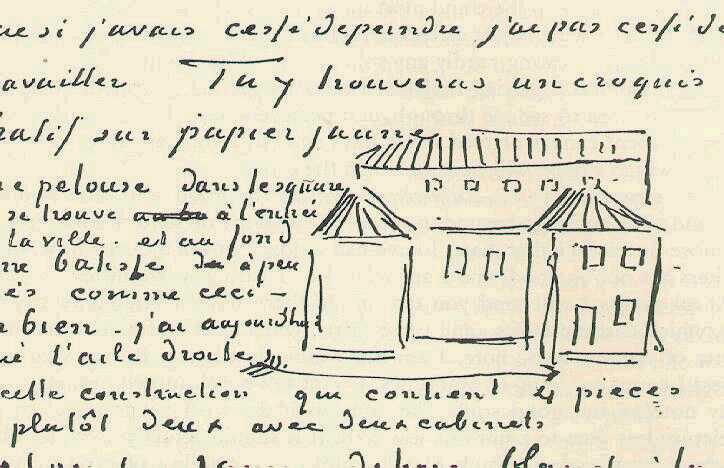 ue si j'avais cessé de peindre j'ai pas cessé de
availler Tu y trouveras un croquis
hatif sur papier jaune
e pelouse dans le square
se trouve à l'entrée
la ville. et au fond
ne batisse à peu
ès comme ceci –
bien – j'ai aujourd'hui
é l'aile droite
cette construction qui contient 4 pièces
plutôt deux avec deux cabinets